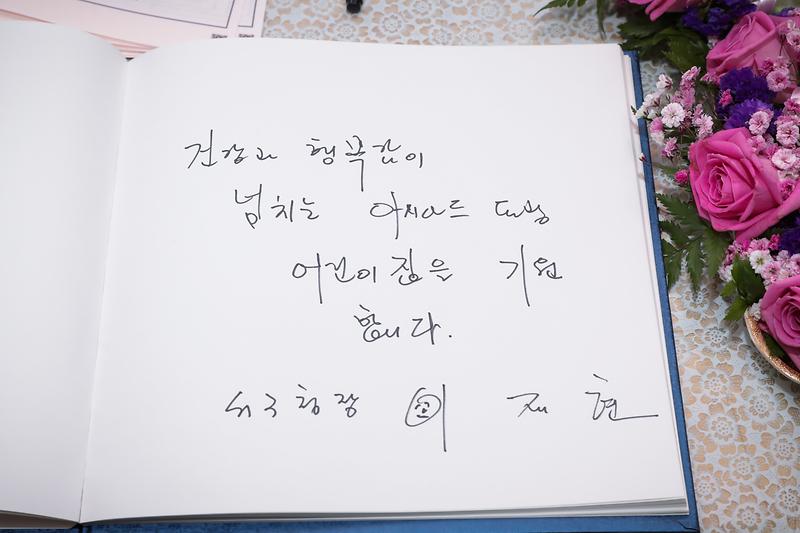 건강과 행복함이
넘치는 아시아드 대상
어린이집을 기원
합니다.
서구청장 이 재 현